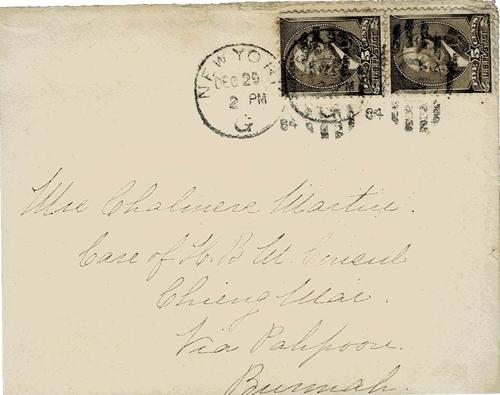 NEW YORK
DEC 29
2 PM
G
84 84
Mrs Chalmers Martin.
Care of H. B. M. Consul
Chieng Mai.
Via Pahpoon.
Burmah.